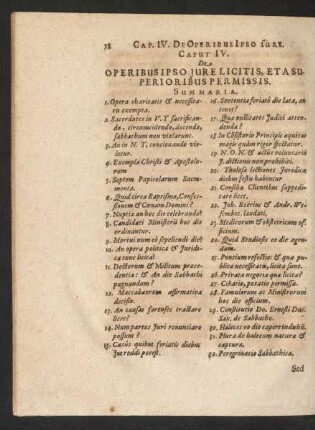 78 CAP. IV. DE OPERIBUS IPSO JURE.
CAPUT IV.
DE
OPERIBUS IPSO JURE LICITIS, ET A SU-
PERIORIBUS PERMISSIS.
SUMMARIA.
1. Opera charitatis & necessita-
tis exempta.
2. Sacerdotes in V. T sacrifican-
do, circumcidendo, docendo,
sabbathum non violarunt.
3. An in N. T. concionando vio-
letur.
4. Exempla Christi & Apostolo-
rum
5. Septem Papicolarum Sacra-
menta.
6. Quid circa Baptisma, Confes-
sionem & Coenam Domini?
7. Nuptiæ an hoc die celebrandæ?
8. Candidati Ministerii hoc die
ordinantur.
9. Mortui num eo sepeliendi die?
10. An opera politica & Juridi-
ca tunc licita?
11. Doctorum & Militum præce-
dentia: & an die Sabbathi
pugnandum?
12. Maccabæorum affirmativa
decisio.
13. An causas forenses tractare
licet?
14. Num partes Juri renunciare
possunt?
15. Casus quibus feriatis diebus
Jus reddi potest.
16. Sententia feriato die lata, an
tenet?
17. Quæ nullitates Judici atten-
dendæ?
18. In Consistorio Principis æquitas
magis quam rigor spectatur.
19. N. O. N. & actus voluntariæ
J. dictionis non prohibiti.
20. Tholosæ lectiones Juridicæ
diebus festis habentur
21. Consilia Clientibus suppedi-
tare licet.
22. Joh. Borini & Andr. We-
senbec. laudati.
23. Medicorum & obstetricum of-
ficium.
24. Quid Studiosis eo die agen-
dum.
25. Pontium refectio: & quæ pu-
blica necessitaria, licita sunt.
26. Privata negotia quæ licita?
27. Cibatio, potatio permissa.
28. Famulorum ac Ministrorum
hoc die officium.
29. Constitutio Dn. Ernesti Duc.
Sax. de Sabbatho.
30. Haleces eo die capere indulsit.
31. Plura de halecum natura &
captura.
32. Peregrinatio Sabbathica.
Sed